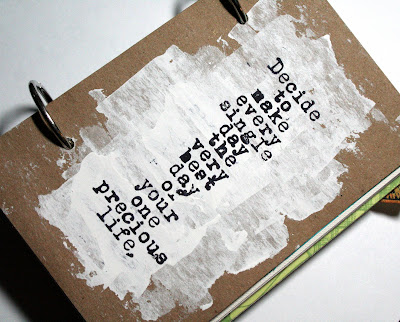 Decide
to
make
every
single
day
the
very
best
day
of
your
one
precious
life.